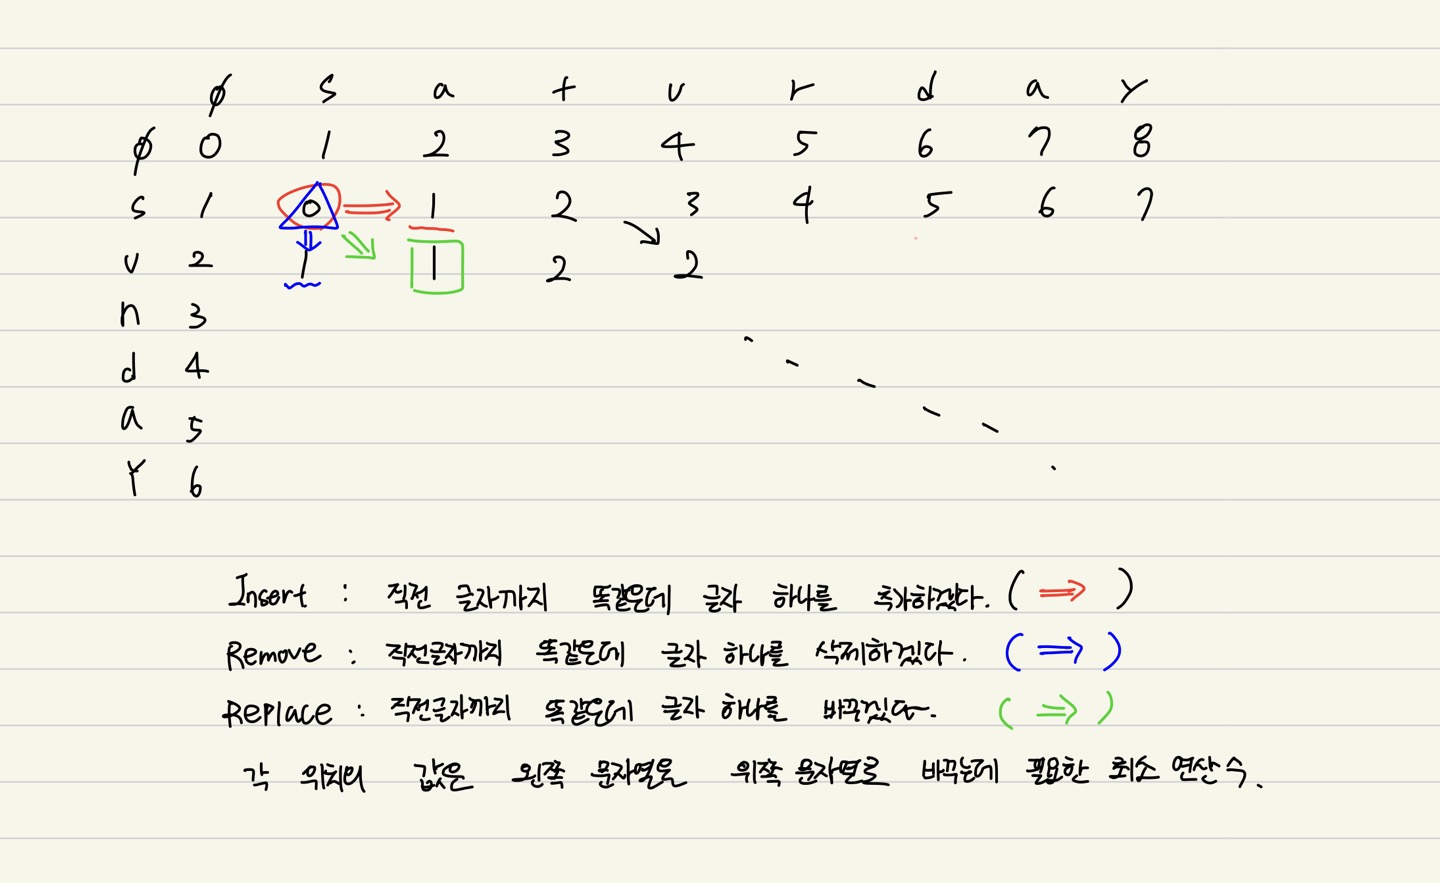 ∅ S a t u r d a y
∅ 0 1 2 3 4 5 6 7 8
S 1 0 1 2 3 4 5 6 7
u 2 1 1 2 2
n 3
d 4
a 5
Y 6
Insert : 직전 글자까지 똑같은데 글자 하나를 추가하겠다. ( ⇒ )
Remove : 직전글자까지 똑같은데 글자 하나를 삭제하겠다. ( ⇒ )
Replace : 직전글자까지 똑같은데 글자 하나를 바꾸겠다. ( ⇒ )
각 위치의 값은 왼쪽 문자열을 위쪽 문자열로 바꾸는데 필요한 최소 연산 수.